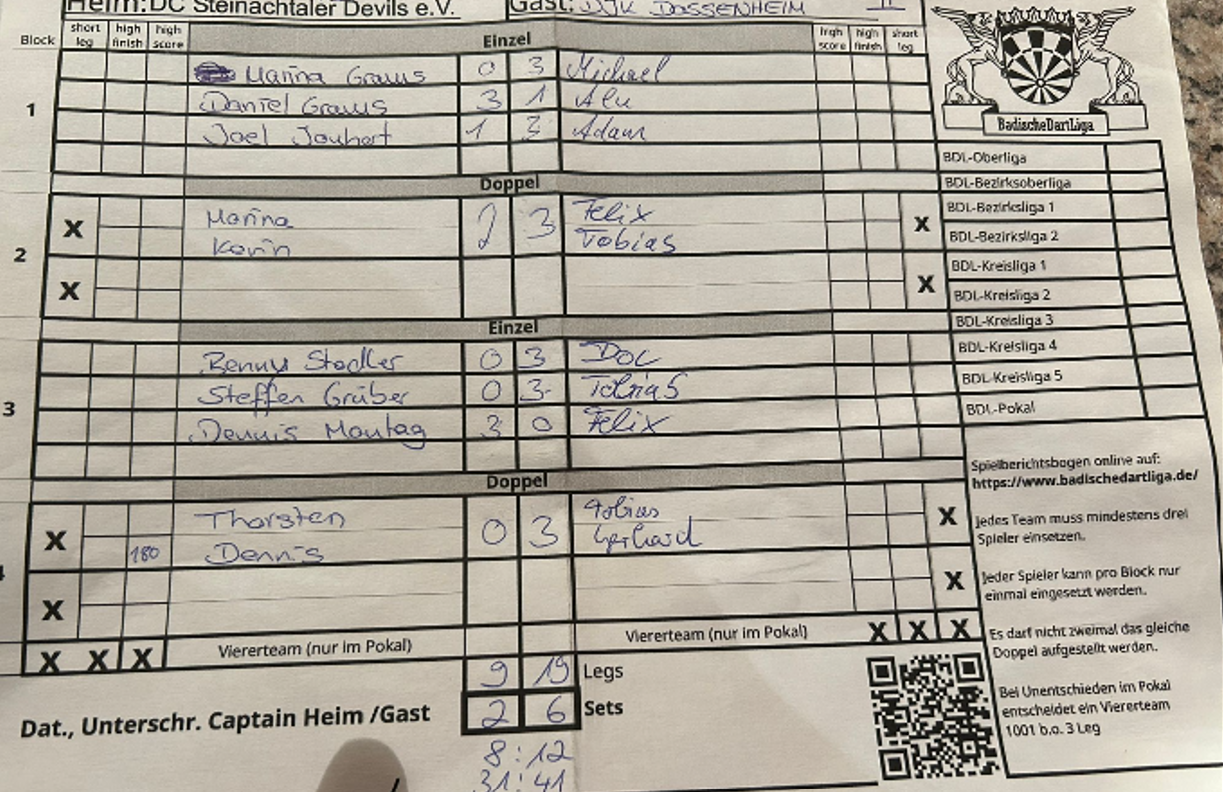 Heim: DC Steinachtaler Devils e.V. Gast: DJK DOSSENHEIM II
Block short leg high finish high score Einzel high score high finish short leg
1
Marina Graus 0 3 Michael
Daniel Graus 3 1 Alu
Joel Jouhart 1 3 Adam
BadischeDartLiga
Doppel
2
X Marina 2 3 Felix X
Karin Tobias
X X
Einzel
3
Benny Stadler 0 3 Doc
Steffen Gruber 0 3 Tobias
Dennis Montag 3 0 Felix
Doppel
X Thorsten 0 3 Tobias X
180 Dennis Gerhard
X X
X X X Viererteam (nur im Pokal) Viererteam (nur im Pokal) X X X
9 19 Legs
Dat., Unterschr. Captain Heim /Gast 2 6 Sets
8:12
31:41
BDL-Oberliga
BDL-Bezirksoberliga
BDL-Bezirksliga 1
BDL-Bezirksliga 2
BDL-Kreisliga 1
BDL-Kreisliga 2
BDL-Kreisliga 3
BDL-Kreisliga 4
BDL-Kreisliga 5
BDL-Pokal
Spielberichtsbogen online auf:
https://www.badischedartliga.de/
Jedes Team muss mindestens drei
Spieler einsetzen.
Jeder Spieler kann pro Block nur
einmal eingesetzt werden.
Es darf nicht zweimal das gleiche
Doppel aufgestellt werden.
Bei Unentschieden im Pokal
entscheidet ein Viererteam
1001 b.o. 3 Leg